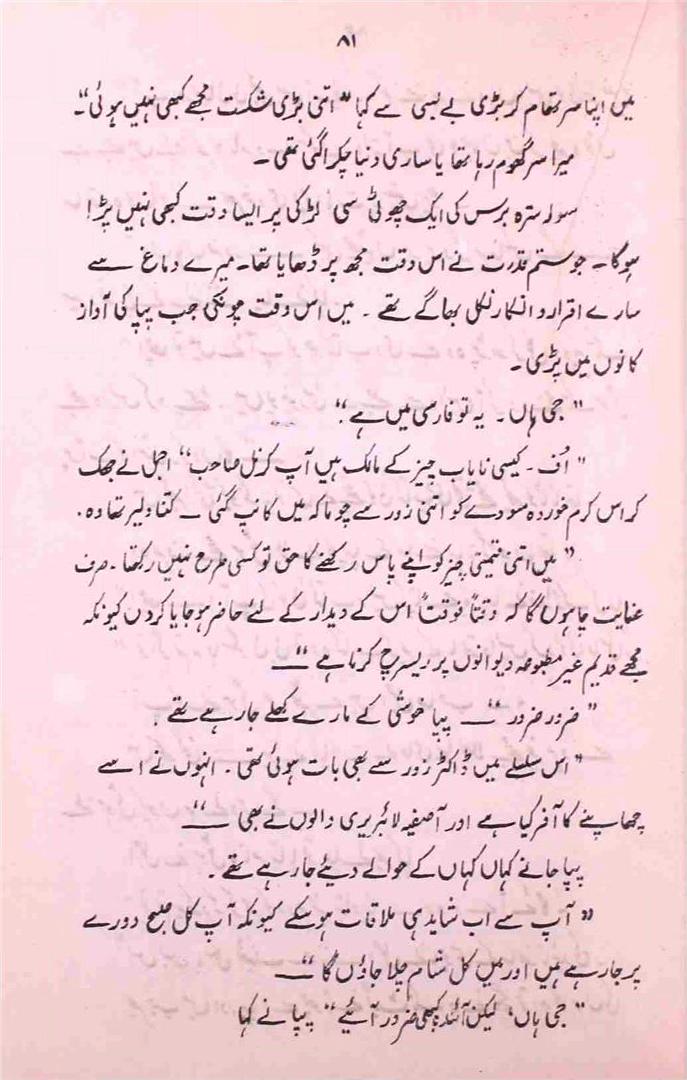 ۸۱
میں اپنا سر تھام کر بڑی بے بسی سے کہا "اتنی بڑی شکست مجھے کبھی نہیں ہوئی"۔
میرا سر گھوم رہا تھا یا ساری دنیا چکرا گئی تھی۔
سولہ سترہ برس کی ایک چھوٹی سی لڑکی پر ایسا وقت کبھی نہیں پڑا
ہوگا۔ جو ستم قدرت نے اس وقت مجھ پر ڈھایا تھا۔ میرے دماغ سے
سارے اقرار و انکار نکل بھاگے تھے۔ میں اس وقت چونکی جب پپا کی آواز
کانوں میں پڑی۔
"جی ہاں۔ یہ تو فارسی میں ہے"۔
"اُف۔ کیسی نایاب چیز کے مالک ہیں آپ کرنل صاحب" اجمل نے جھک
کر اس کرم خوردہ مسودے کو اتنی زور سے چوما کہ میں کانپ گئی۔ کتنا دلیر تھا وہ۔
"میں اتنی قیمتی چیز کو اپنے پاس رکھنے کا حق تو کسی طرح نہیں رکھتا۔ صرف
عنایت چاہوں گا کہ وقتاً فوقتاً اس کے دیدار کے لئے حاضر ہو جایا کروں کیونکہ
مجھے قدیم غیر مطبوعہ دیوانوں پر ریسرچ کرنا ہے"۔
"ضرور ضرور"۔ پپا خوشی کے مارے کھلے جا رہے تھے۔
"اس سلسلے میں ڈاکٹر زور سے بھی بات ہوئی تھی۔ انہوں نے اسے
چھاپنے کا آفر کیا ہے اور آصفیہ لائبریری والوں نے بھی۔"
پپا جانے کہاں کہاں کے حوالے دیئے جا رہے تھے۔
"آپ سے اب شاید ہی ملاقات ہو سکے کیونکہ آپ کل صبح دورے
پر جا رہے ہیں اور میں کل شام چلا جاؤں گا"۔
"جی ہاں، لیکن آئندہ کبھی ضرور آئیے" پپا نے کہا